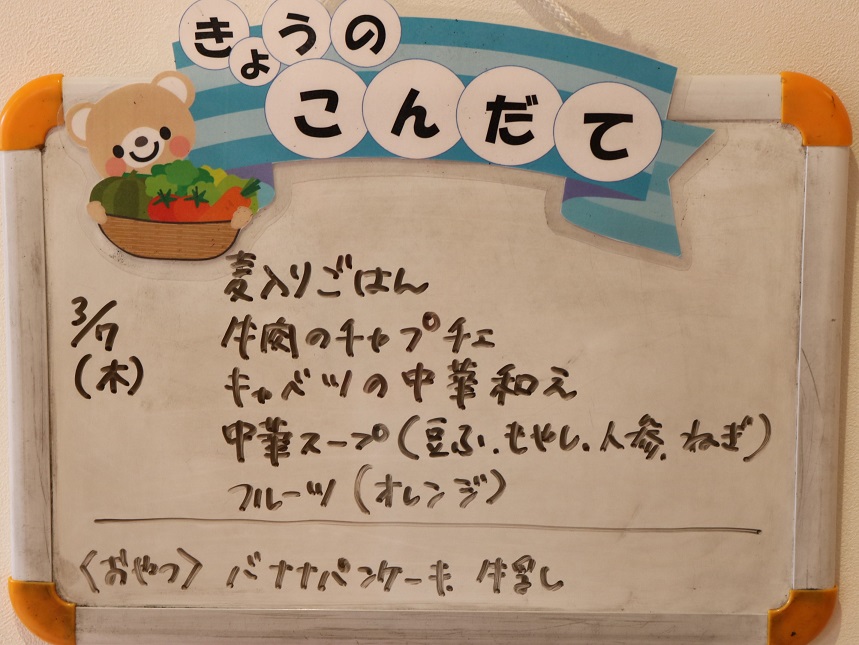 きょうの
こんだて
麦入りごはん
3/7
(木)
牛肉のチャプチェ
キャベツの中華和え
中華スープ(豆ふ、もやし、人参、ねぎ)
フルーツ(オレンジ)
〈おやつ〉 バナナパンケーキ、牛乳